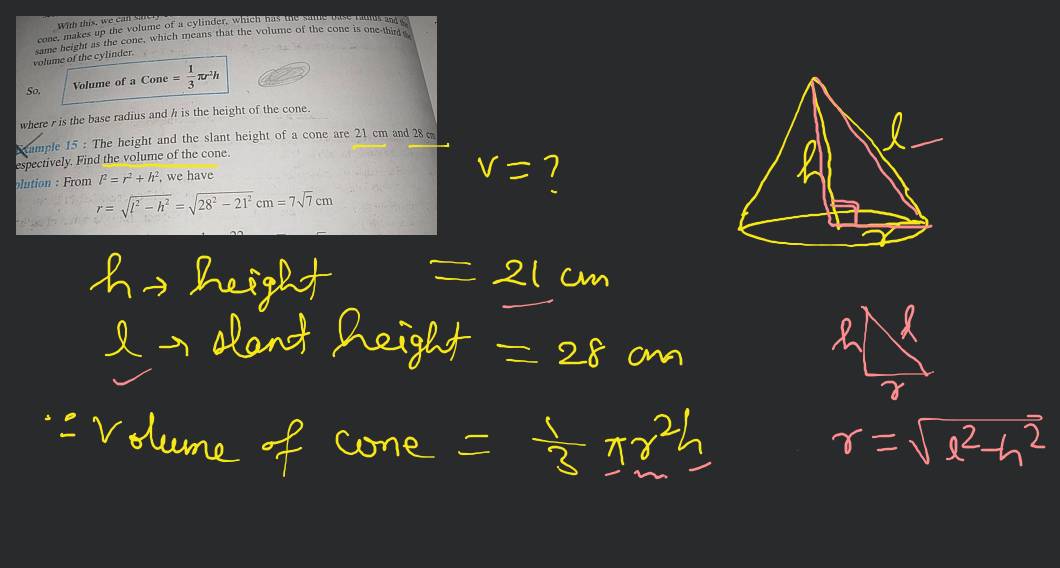 With this, we can safely
cone, makes up the volume of a cylinder, which has the same base radius and the
same height as the cone, which means that the volume of the cone is one-third the
volume of the cylinder.
So, Volume of a Cone = 1/3 πr²h
where r is the base radius and h is the height of the cone.
Example 15 : The height and the slant height of a cone are 21 cm and 28 cm
espectively. Find the volume of the cone.
olution : From l² = r² + h², we have
r = √(l² – h²) = √(28² – 21²) cm = 7√7 cm
v = ?
h
l
r
h → height = 21 cm
l → slant height = 28 cm
h
l
r
∵ Volume of cone = 1/3 πr²h
r = √(l²-h²)